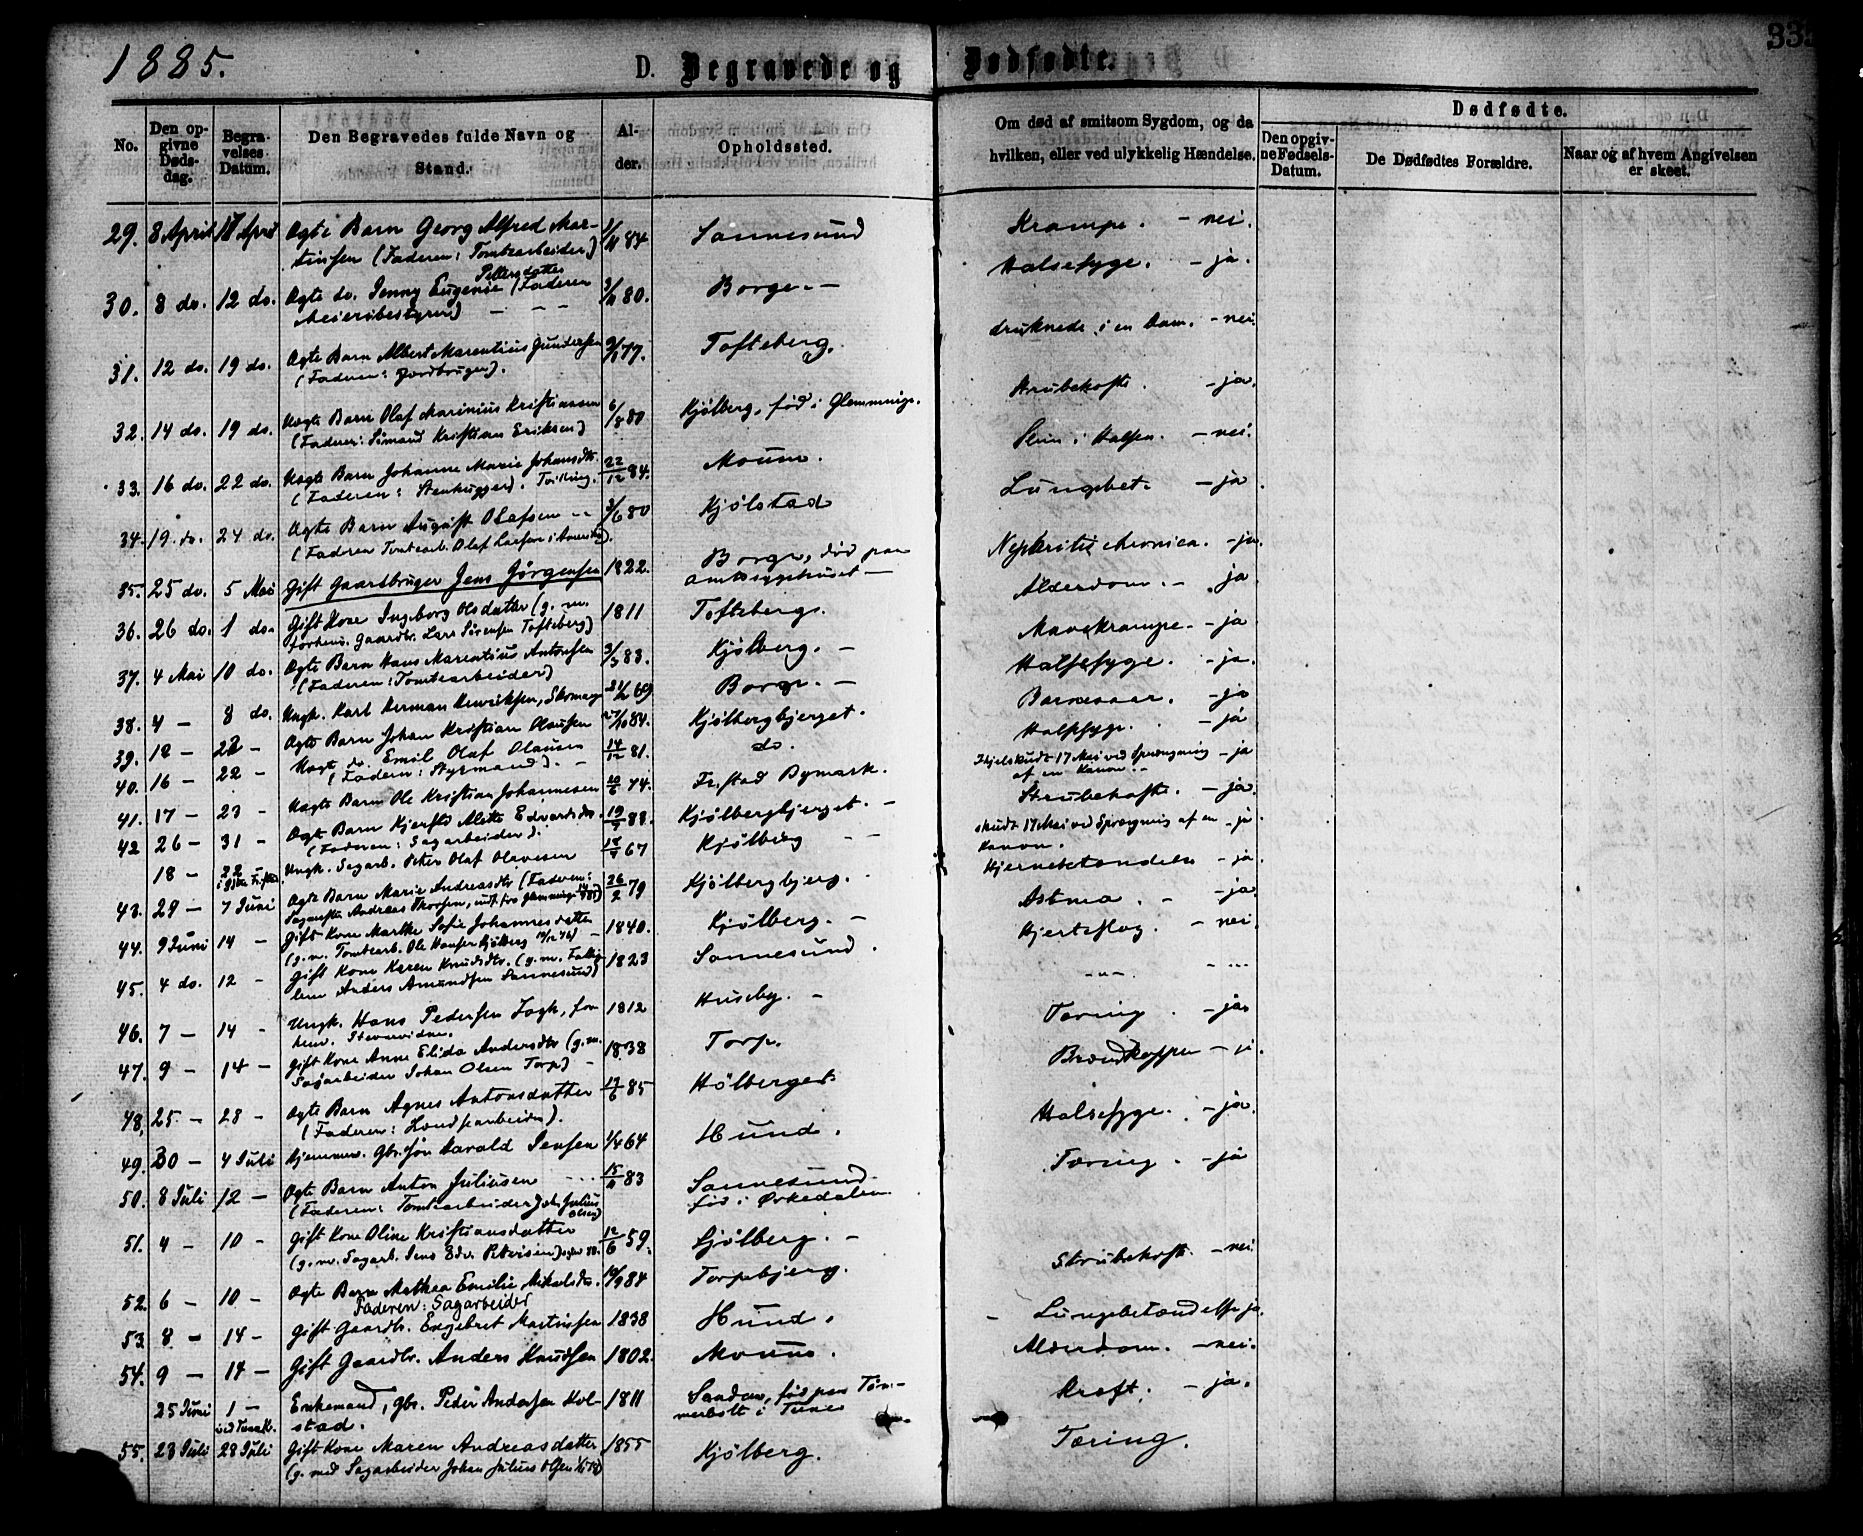 1885.
D. Begravede og Dødfødte.
333
No.
Den opgivne Dødsdag.
Begravelses Datum.
Den Begravedes fulde Navn og Stand.
Alder.
Opholdssted.
Om død af smitsom Sygdom, og da hvilken, eller ved ulykkelig Hændelse.
Dødfødte.
Den opgivne Fødsels-Datum.
De Dødfødtes Forældre.
Naar og af hvem Angivelsen er skeet.
29. 8 April 17 April Ægte Barn Georg Alfred Mar-
tinsen (Faderen: Tomtearbeider) 84 Sannesund
Krampe. - nei.
30. 8 do. 12 do. Ægte do. Jenny Eugenie Pettersdatter (Faderen
Meieribestyrer) - - - 80. Borge. -
Halsesyge. - ja.
31. 12 do. 19 do. Ægte Barn Albert Marentius Gundersen
(Faderen: Jordbruger). 77. Tofteberg.
druknede i en Dam. - nei.
32. 14 do. 19 do. Uægte Barn Olaf Marinius Kristiansen
(Faderen: Sømand Kristian Eriksen) 6/8 80 Kjølberg, fød i Glemminge.
Strubehoste. - ja.
33. 16 do. 22 do. Uægte Barn Johanne Marie Johansdtr.
(Faderen: Stenhugger). Tvilling. 22/12 84. Moum.
Slim i Halsen. - nei.
34. 19 do. 24 do. Ægte Barn August Olafsen
(Faderen Tomtearb. Olaf Larsen i Amerika). 3/6 80 Kjølstad
Lungebet. - ja.
35. 25 do. 5 Mai Gift Gaardbruger Jens Jørgensen 1822. Borge, død paa
Amtssygehuset -
Nephritis chronica. - ja.
36. 26 do. 1 do. Gift Kone Ingeborg Olsdatter (g. m.
forhenv. Gaardbr. Lars Sørensen Tofteberg) 1811 Tofteberg.
Alderdom. - ja
37. 4 Mai 10 do. Ægte Barn Hans Marentius Antonsen
(Faderen: Tomtearbeider) 3/3 83. Kjølberg. -
Mavekrampe. - ja
38. 4 - 8 do. Ungk. Karl Herman Henriksen, Skomager 69 Borge. -
Halsesyge. - ja.
39. 18 - 22 - Ægte Barn Johan Kristian Olausen 27/10 84. Kjølbergbjerget.
Barnesaar. - ja
40. 16 - 22 - Uægt. do. Emil Olaf Olausen
(Faderen: Styrmand). - 14/12 81. do.
Halsesyge. - ja
41. 17 - 23 - Uægte Barn Ole Kristian Johannesen 74. Fr.stad Bymark.
Ihjelskudt 17 Mai ved Sprængning - ja
af en Kanon. -
42 26 - 31 - Ægte Barn Kjersti Alette Edvardsdtr.
(Faderen: Sagarbeider). 83. Kjølbergbjerget. -
Strubehoste. - ja.
18 - 22 - Ungk. Sagarb. Peter Olaf Olavesen 67 Kjølberg - -
skudt 17 Mai ved Sprængning af en - ja
Kanon.
43. 29 - 7 Juni Ægte Barn Marie Andreasdtr (Faderen:
Sagmester Andreas Thorsen, indf. fra Glemminge) 26/2 79 Kjølbergbjerg.
Hjernebetændelse - ja.
44. 9 Juni 14 - Gift Kone Marthe Sofie Johannesdatter
(g. m. Tomtearb. Ole Hansen Kjølberg) 1840. Kjølberg. -
Astma. - ja.
45. 4 do. 12 - Gift Kone Karen Knudsdtr. (g. m. Fattig-
lem Anders Amundsen Sannesund) 1823 Sannesund.
Hjerteslag. - nei.
46. 7 - 14 - Ungk. Hans Pedersen Fogh, for-
henv. 1812 Huseby. -
47. 9 - 14 - Gift Kone Anne Elida Andersdtr (g. m.
Sagarbeider Johan Olsen Torp) - 1838 Torp.
Tæring. - ja.
48. 25 - 28 - Ægte Barn Agnes Antonsdatter
(Faderen: Londsearbeider). 85 Hølberget.
Brændkopper - ja.
49. 30 - 4 Juli Hjemmev. Gbr.søn Harald Jensen 64 Hund.
Halsesyge. - ja.
50. 8 Juli 12 - Ægte Barn Anton Juliusen
(Faderen: Tomtearbeider Joh. Julius Olsen) 83 Sannesund
fød i Ørkedalen
Tæring. - ja
51. 4 - 10 - Gift Kone Oline Kristiansdatter
(g. m. Sagarb. Jens Edv. Pettersen) 12/6 59. Kjølberg. -
52. 6 - 10 - Ægte Barn Mathea Emilie Nikolsdtr.
Faderen: Sagarbeider 84 Torpebjerg.
Strubehoste. - nei.
53 8 - 14 - Gift Gaardbr. Engebret Martinsen 1838 Hund.
Lungebetændelse ja.
54. 9 - 14 - Gift Gaardbr. Anders Knudsen 1802. Moum.
Alderdom. - nei.
25 Juni 1 -
ved Tune K. Enkemand, gbr. Peder Andersen Hol-
stad. 1811 Sanden, fød paa Tøm-
merholt i Tune
Kræft. - ja.
55. 23 Juli 28 Juli Gift Kone Maren Andreasdatter
(g. med Sagarbeider Johan Julius Olsen) 1855 Kjølberg.
Tæring.